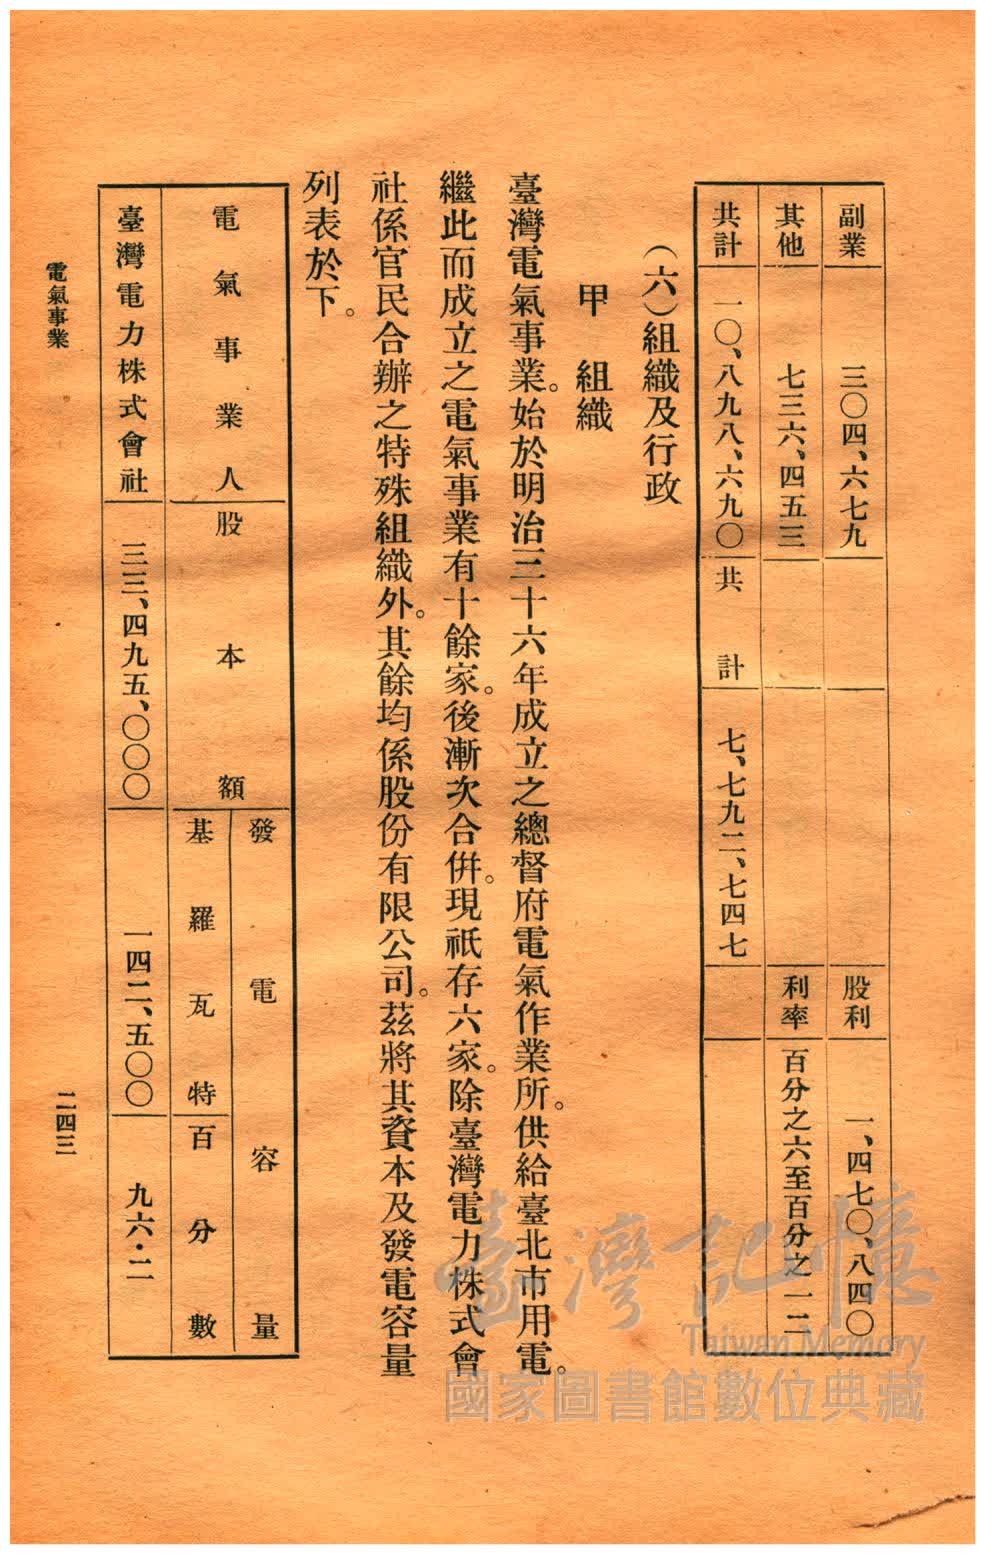 副業 三〇四、六七九 股利 一、四七〇、八四〇
其他 七三六、四五三 利率 百分之六至百分之一二
共計 一〇、八九八、六九〇 共計 七、七九二、七四七
（六）組織及行政
甲 組織
臺灣電氣事業。始於明治三十六年成立之總督府電氣作業所。供給臺北市用電。
繼此而成立之電氣事業有十餘家。後漸次合併。現祇存六家。除臺灣電力株式會
社係官民合辦之特殊組織外。其餘均係股份有限公司。茲將其資本及發電容量
列表於下。
電氣事業人 股本額 發電容量
基羅瓦特 百分數
臺灣電力株式會社 三三、四九五、〇〇〇 一四二、五〇〇 九六·二
電氣事業
二四三
臺灣記憶
Taiwan Memory
國家圖書館數位典藏